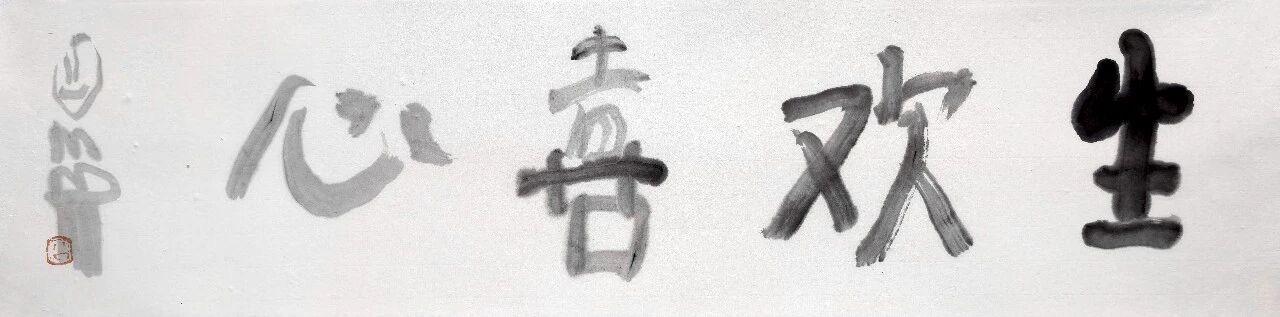 生欢喜心